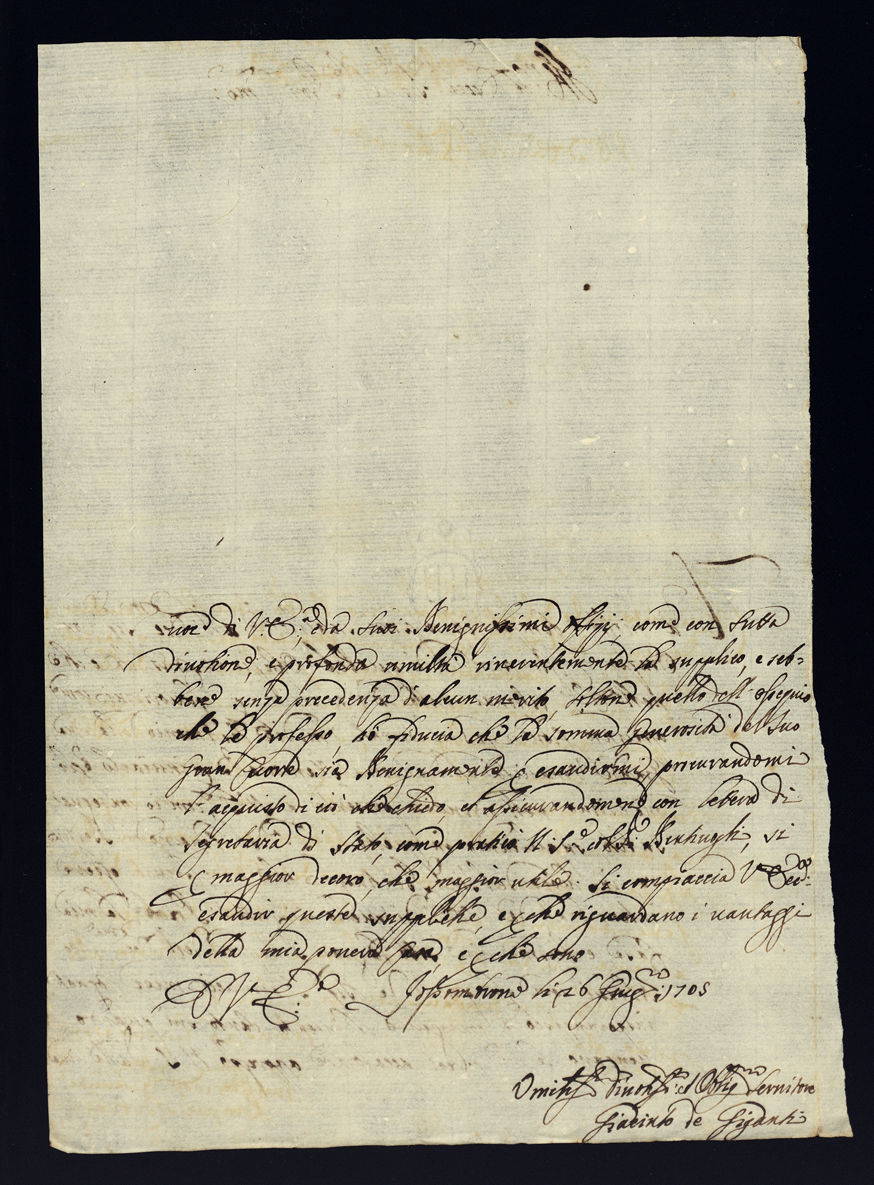 uore di V. E.ª e da suoi Benignissimi offitij, come con tutta
divotione, e profonda umiltà riverentemente la supplico, e seb-
bene senza precedenza di alcun merito, se non quello dell'ossequio
che le professo, hò fiducia che la somma generosità del suo
gran Cuore sia Benignamente esaudirmi, procurandomi
l'acquisto di ciò che chiedo, et assicurandomene con lettera di
Segretaria di Stato, come pratica col Bentivogli, si
maggior decoro, che maggior utile. Si compiaccia V.
esaudir queste suppliche, e che riguardano i vantaggi
della mia povera Casa, e che sono
D V. E.ª li 26 Giug.no 1705
Umiliss.º divotiss.º et Oblig.mo Servitore
Giacinto de Giganti